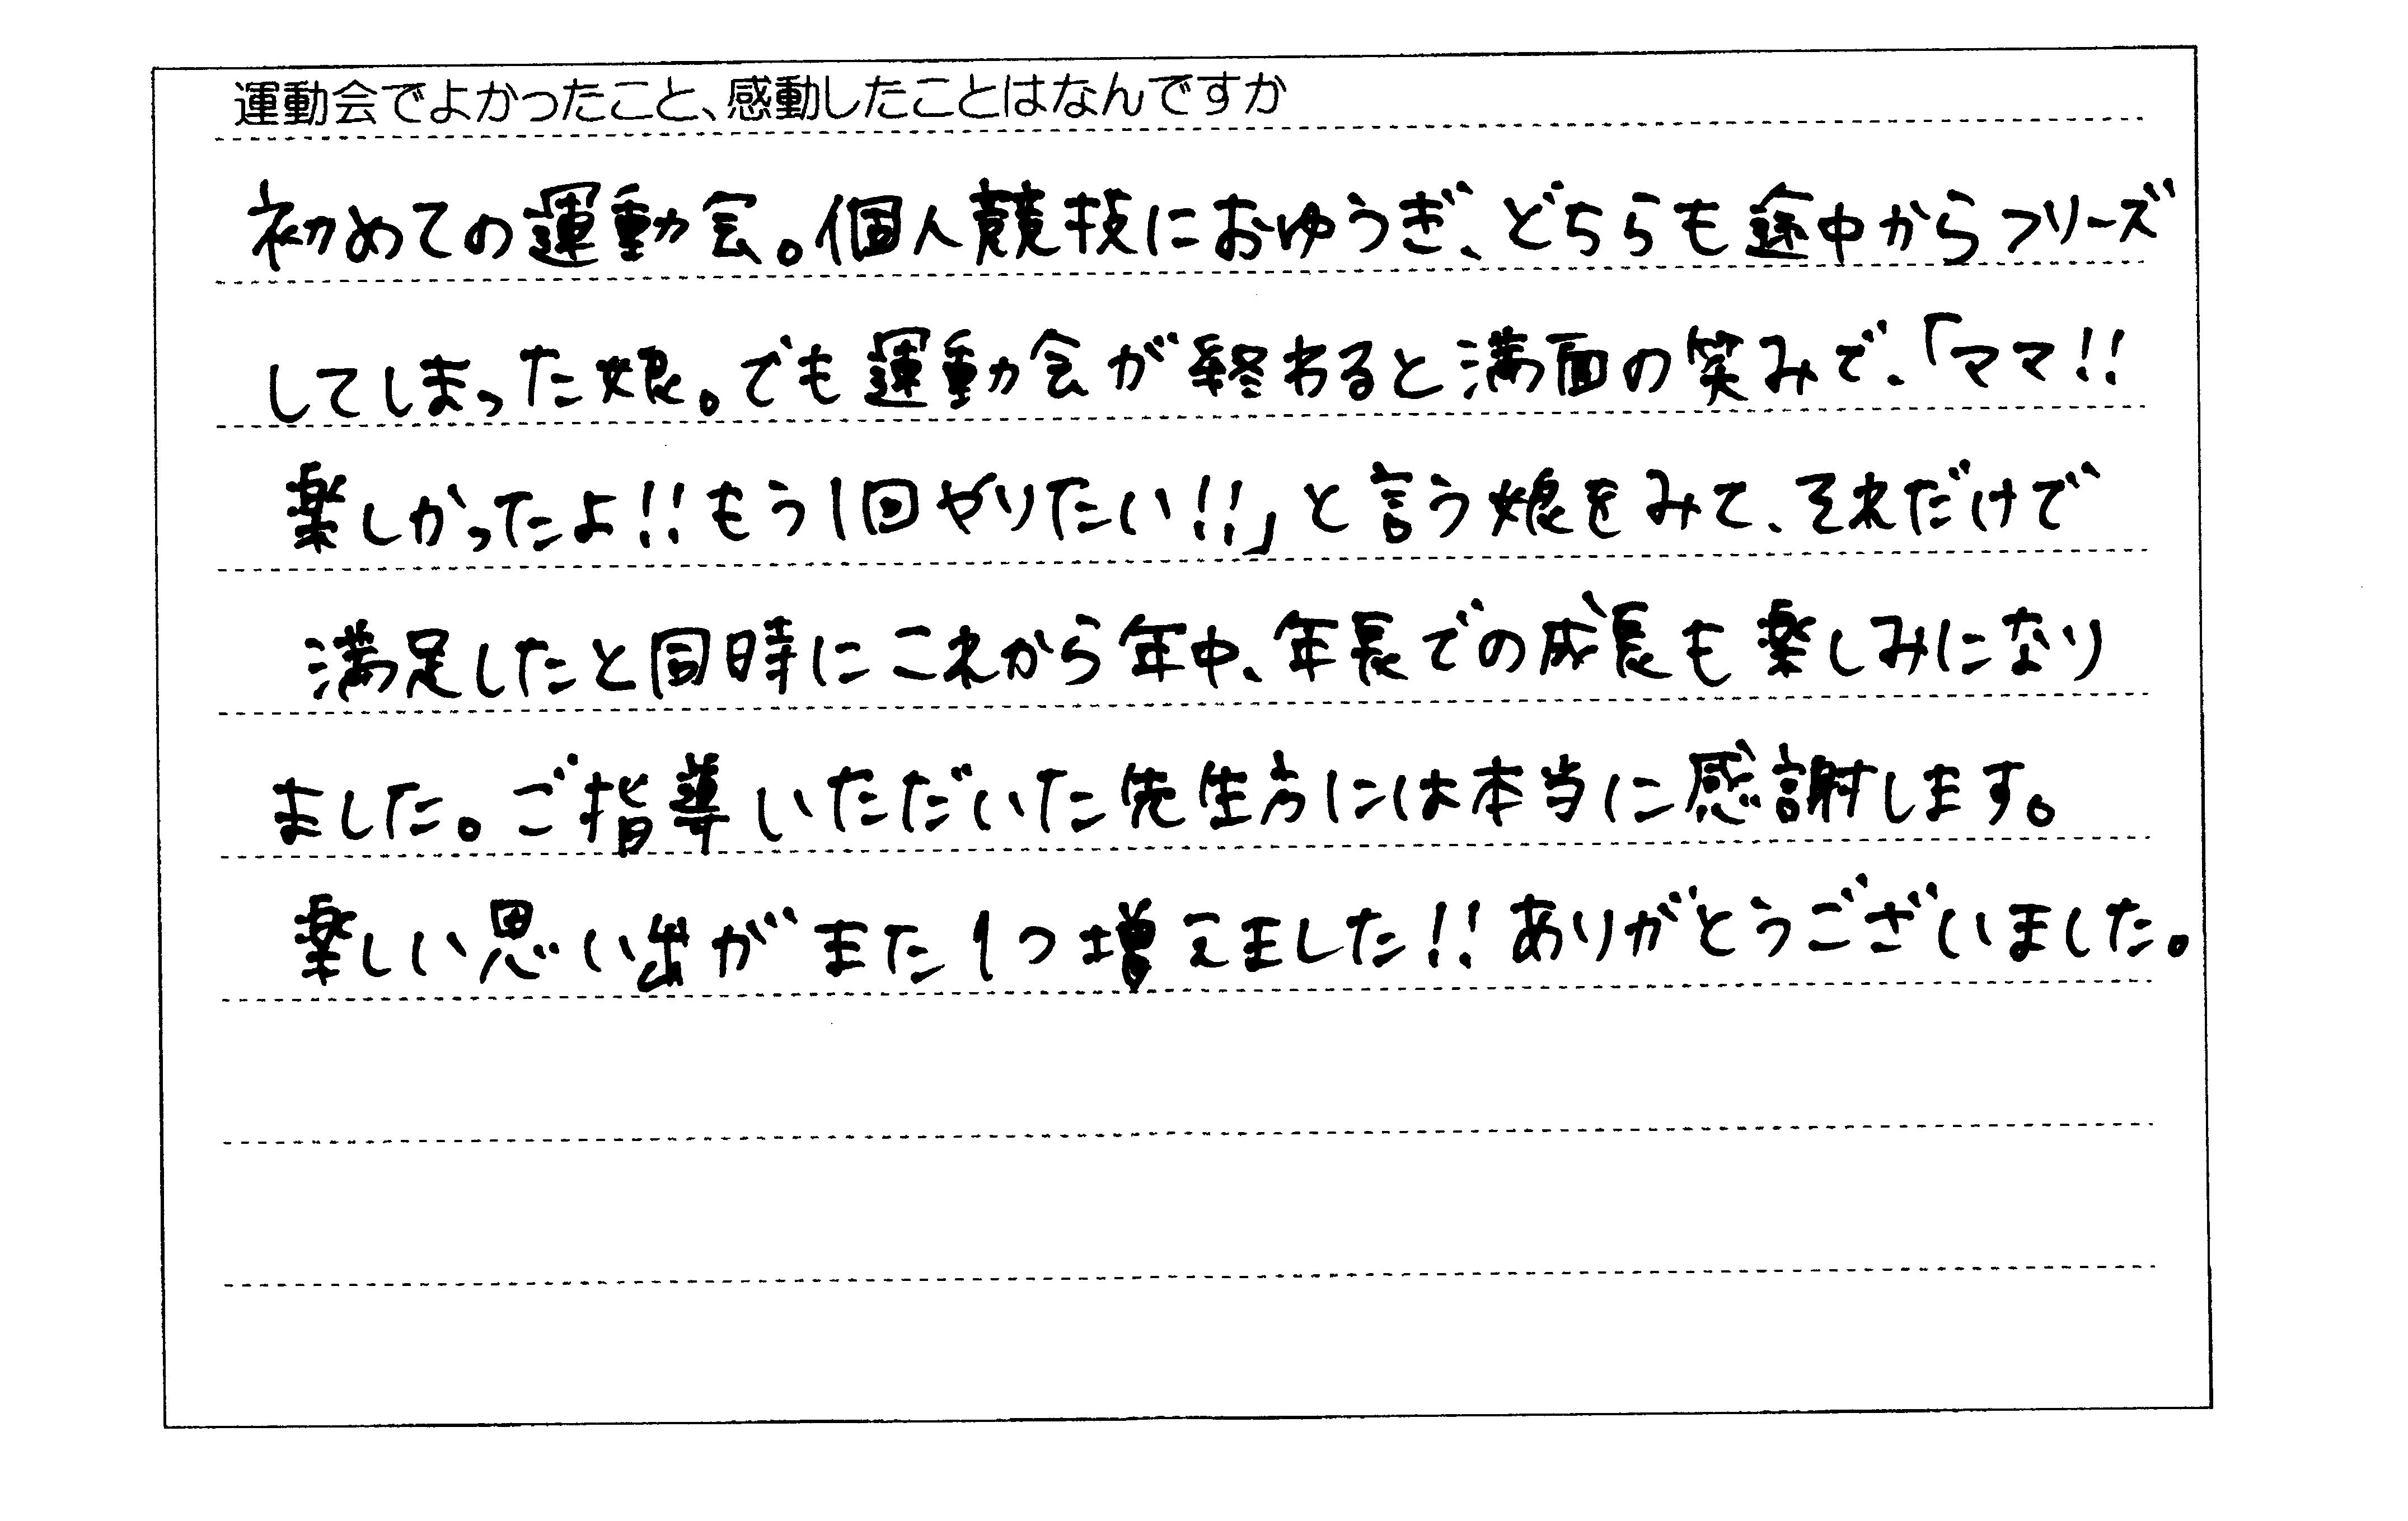 運動会でよかったこと、感動したことはなんですか
初めての運動会。個人競技におゆうぎ、どちらも途中からフリーズ
してしまった娘。でも運動会が終わると満面の笑みで、「ママ!!
楽しかったよ!!もう1回やりたい!!」と言う娘をみて、それだけで
満足したと同時にこれから年中、年長での成長も楽しみになり
ました。ご指導いただいた先生方には本当に感謝します。
楽しい思い出がまた1つ増えました!!ありがとうございました。